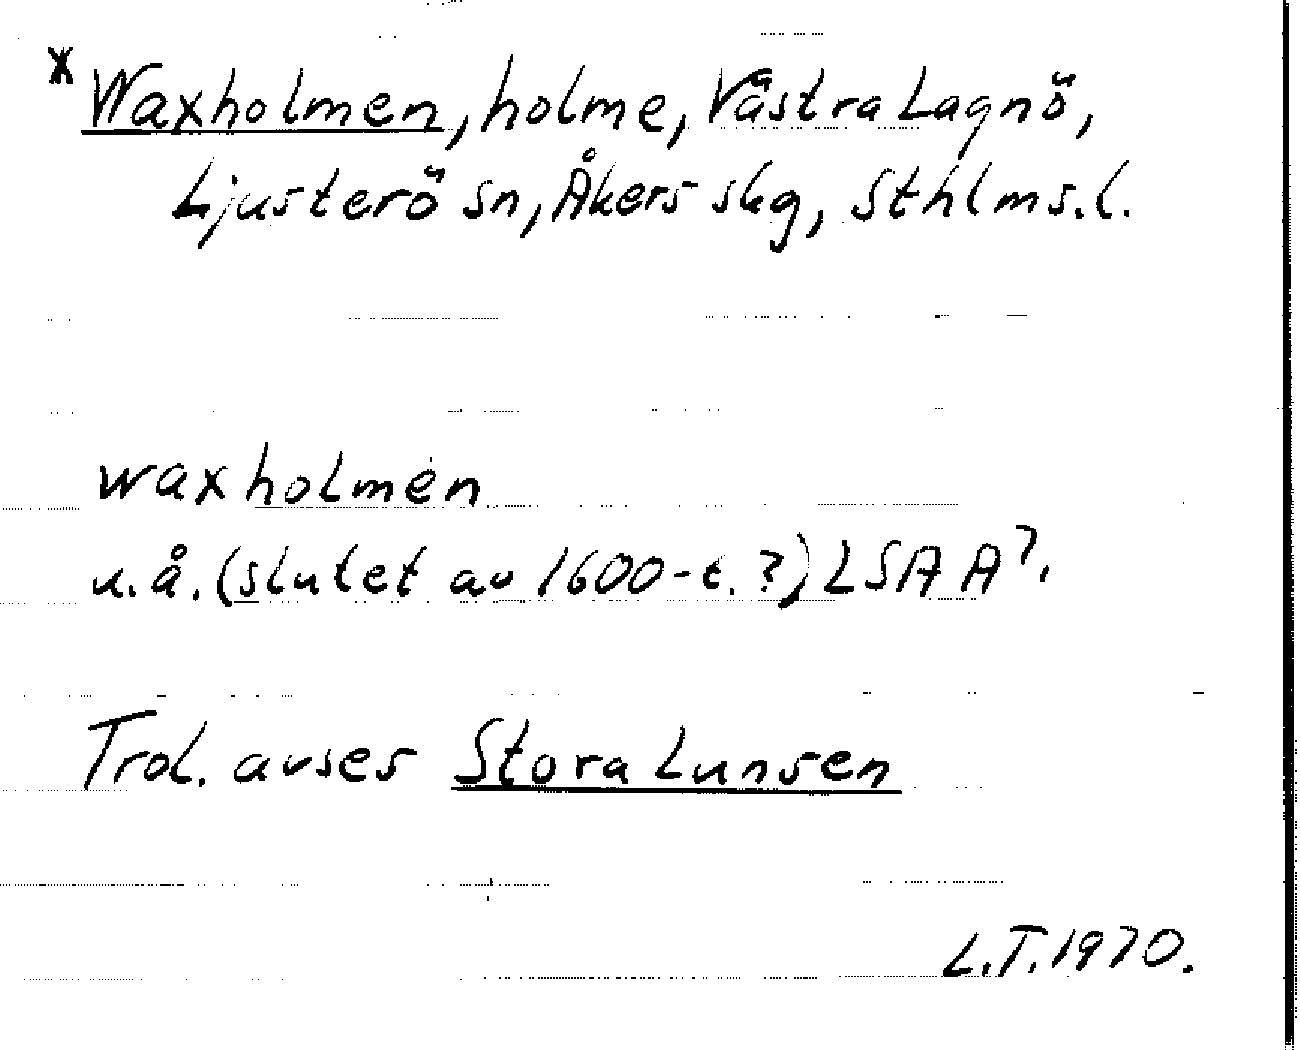 * Waxholmen, holme, Västra Lagnö,
Ljusterö sn, Åkers skg, Sthlms. l.
waxholmen
u.å. (slutet av 1600-t. ?) LSA A⁷.
Trol. avses Stora Lunsen
L.T. 1970.